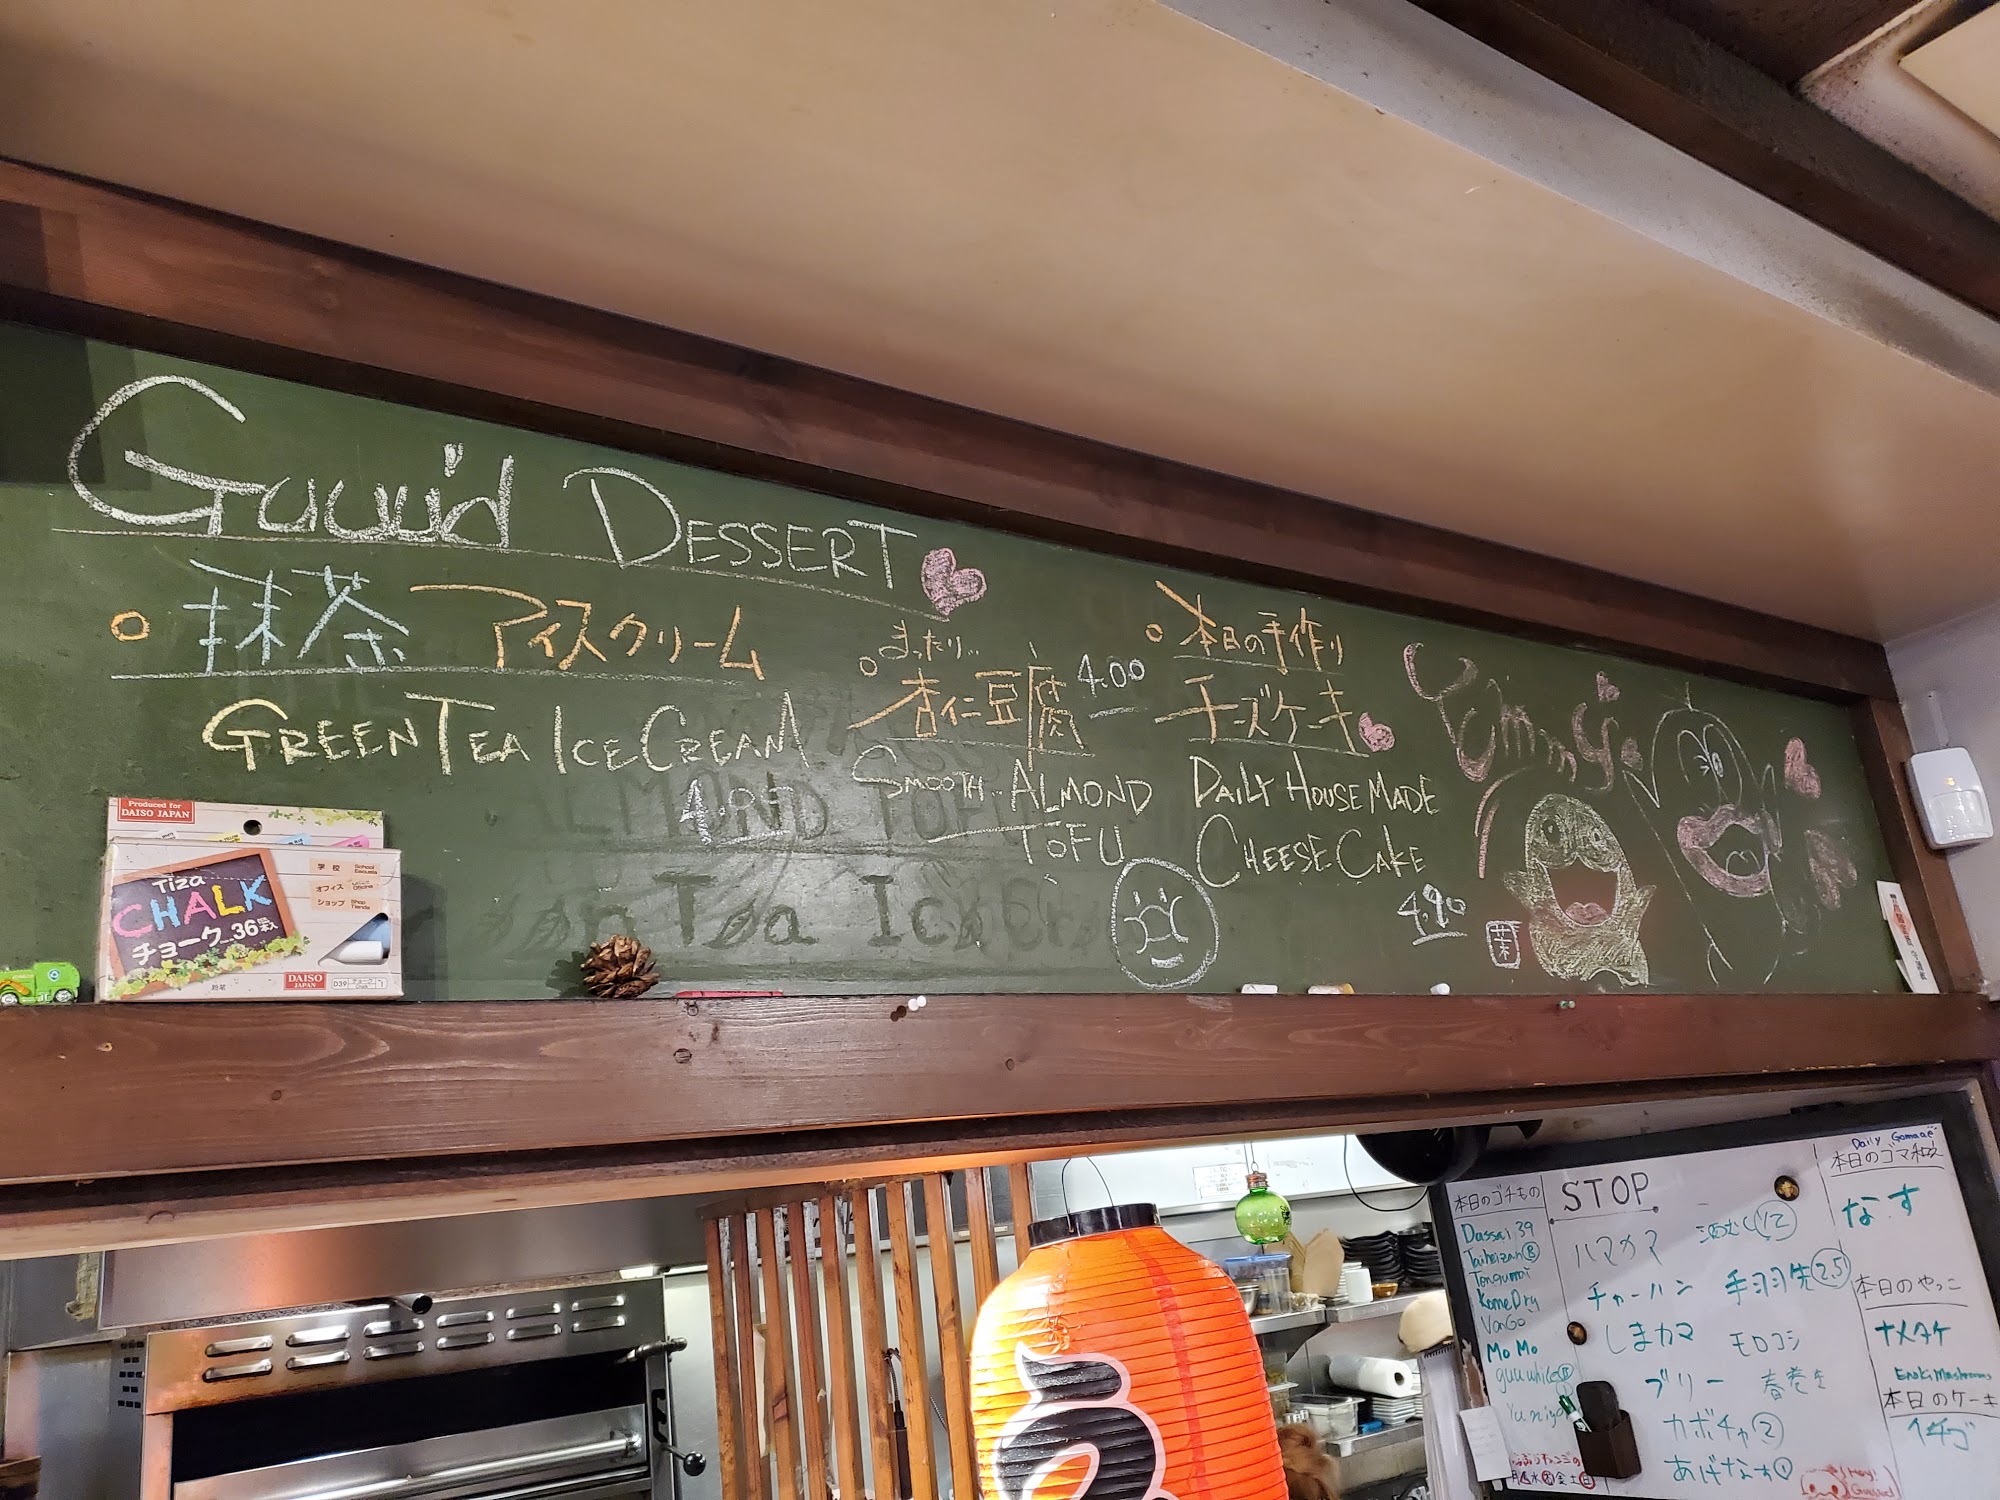 Guuu'd DESSERT
抹茶 アイスクリーム
GREEN TEA ICE CREAM
まったり..
杏仁豆腐 4.00
SMOOTH ALMOND
TOFU
本日の手作り
チーズケーキ
DAILY HOUSE MADE
CHEESE CAKE
4.90
Yummy
Produced for
DAISO JAPAN
Tiza
CHALK
チョーク 36本入
学校 School Escuela
オフィス Office Oficina
ショップ Shop Tienda
DAISO
JAPAN
D39
本日のゴチもの
Dassai 39
Taiheizan
Tengumai
Kome Dry
VanGo
MoMo
STOP
ハマカマ
チャーハン
手羽先 2.5
しまカマ
モロコシ
ブリー
春巻き
カボチャ 2
あげなす 1
Daily Gomaae
本日のゴマ和え
なす
本日のやっこ
ナメタケ
Enoki Mushrooms
本日のケーキ
イチゴ